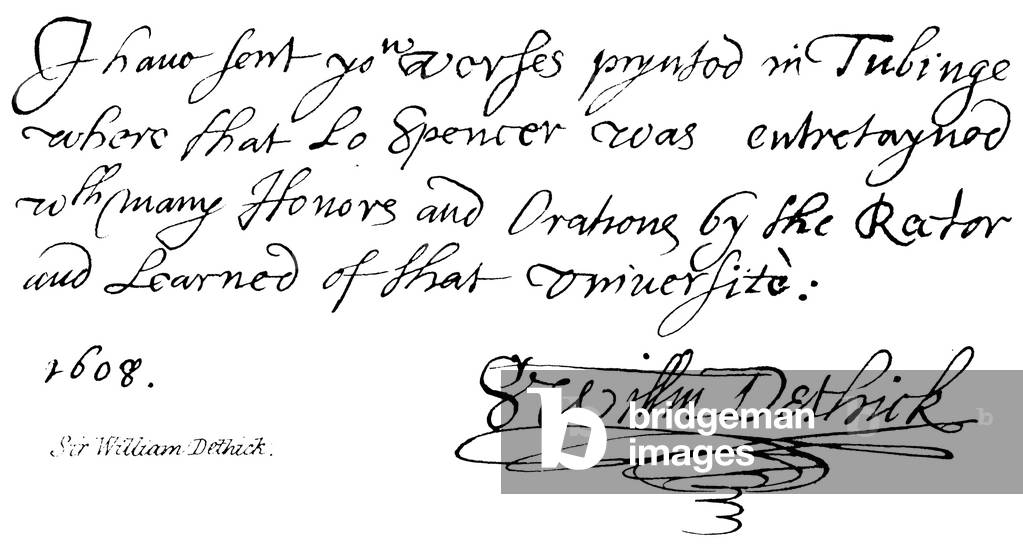 I haue sent you verses prynted in Tubinge
where that Lo Spencer was entretayned
wth many Honors and Orations by the Rector
and Learned of that vniuersitè:
1608.
Sr Willm Dethick
Sir William Dethick.
bridgeman
images